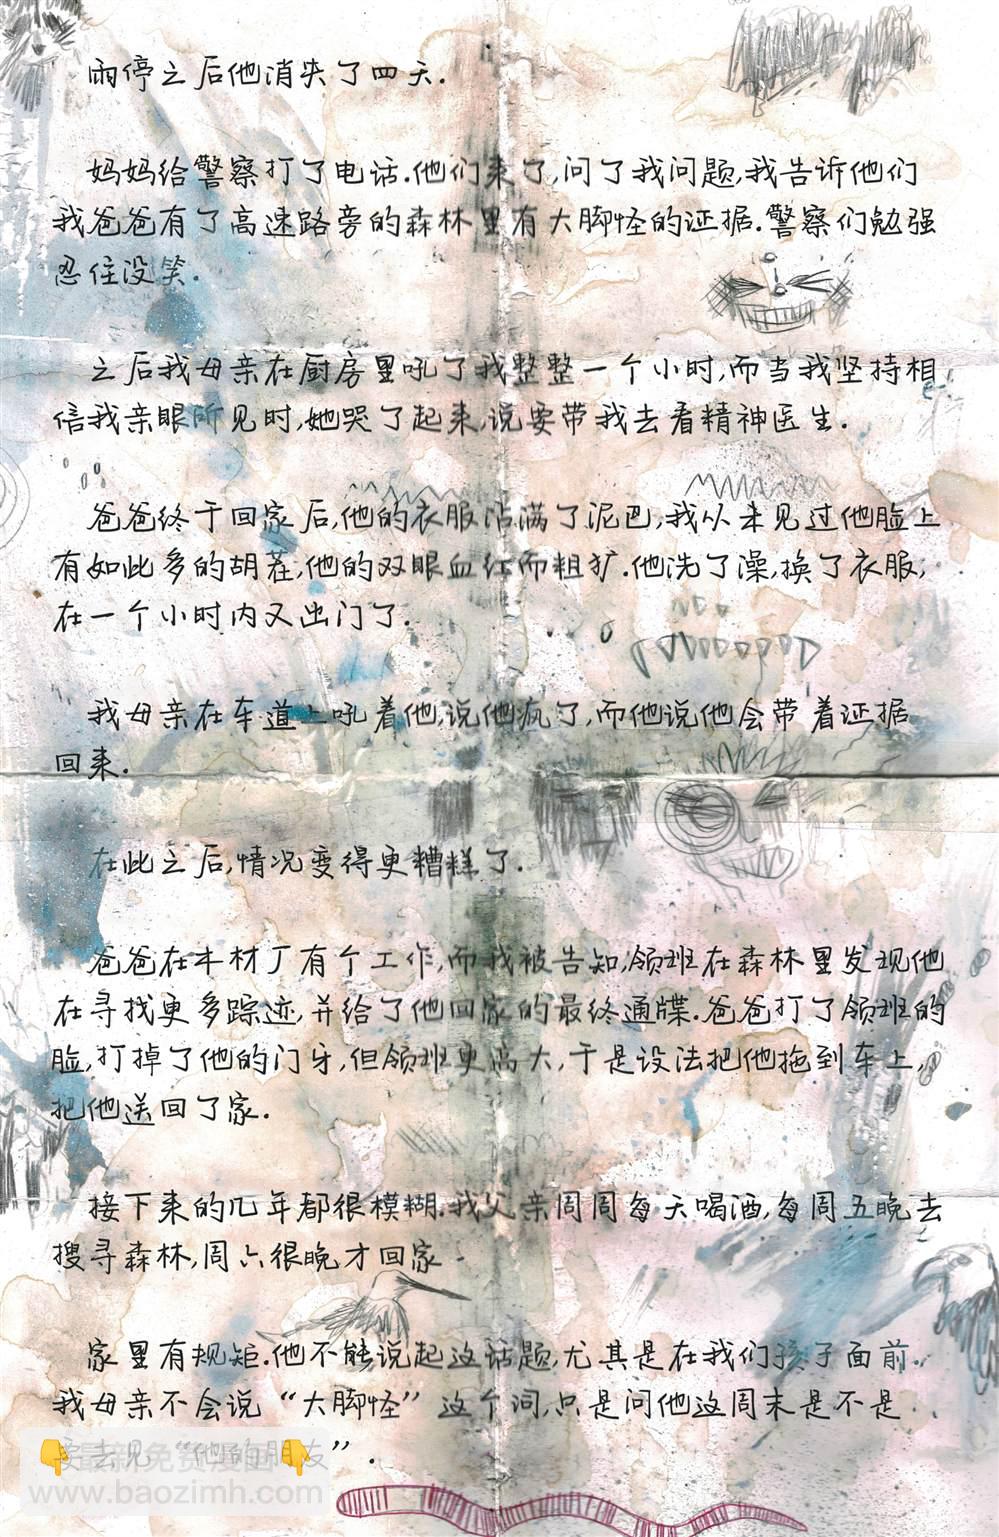 雨停之后他消失了四天.
妈妈给警察打了电话.他们来了,问了我问题,我告诉他们
我爸爸有了高速路旁的森林里有大脚怪的证据.警察们勉强
忍住没笑.
之后我母亲在厨房里吼了我整整一个小时,而当我坚持相
信我亲眼所见时,她哭了起来,说要带我去看精神医生.
爸爸终于回家后,他的衣服沾满了泥巴,我从未见过他脸上
有如此多的胡茬,他的双眼血红而粗犷.他洗了澡,换了衣服,
在一个小时内又出门了.
我母亲在车道上吼着他,说他疯了,而他说他会带着证据
回来.
在此之后,情况变得更糟糕了.
爸爸在木材厂有个工作,而我被告知,领班在森林里发现他
在寻找更多踪迹,并给了他回家的最终通牒.爸爸打了领班的
脸,打掉了他的门牙,但领班更高大,于是设法把他拖到车上,
把他送回了家.
接下来的几年都很模糊.我父亲周周每天喝酒,每周五晚去
搜寻森林,周六很晚才回家.
家里有规矩.他不能说起这话题,尤其是在我们孩子面前.
我母亲不会说“大脚怪”这个词,只是问他这周末是不是
要去见“他的朋友”.
👇最新免费漫画👇
www.baozimh.com